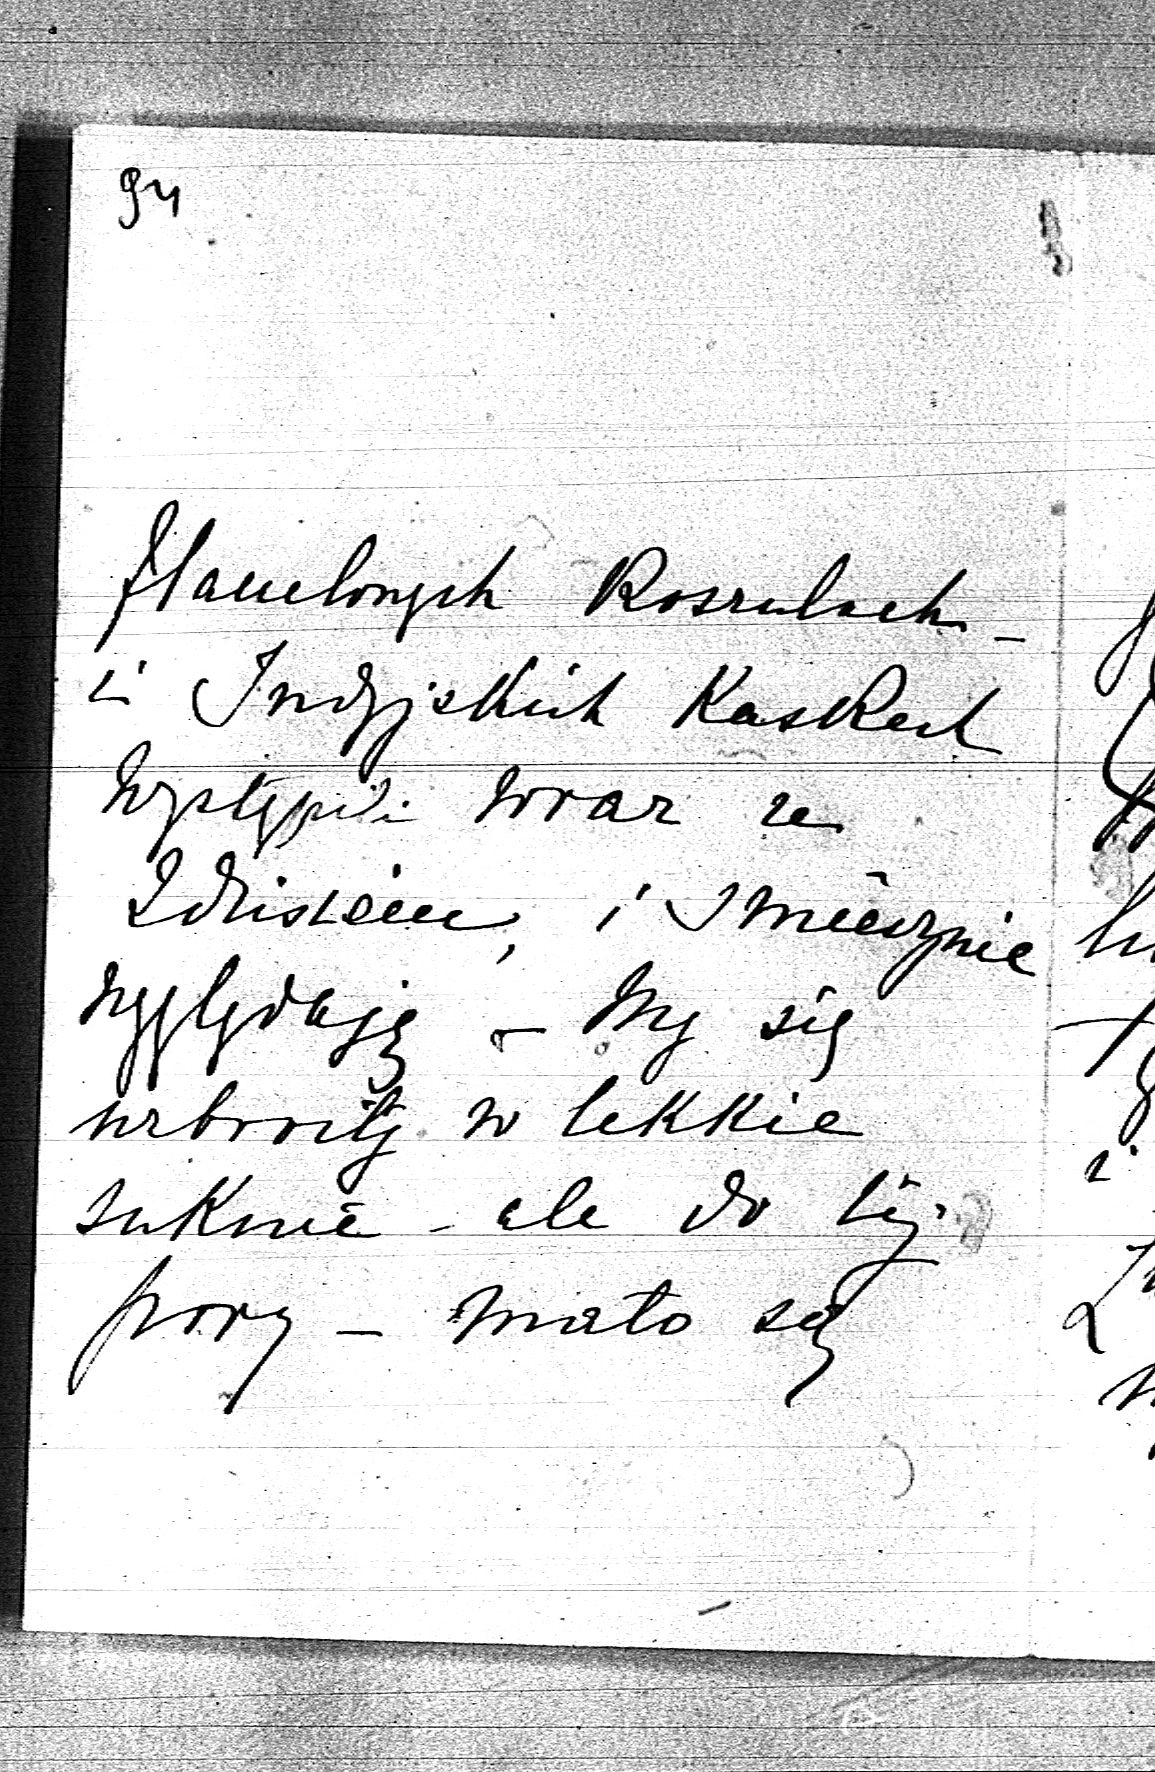 94
flanelowych koszulach –
i Indyjskich Kaskach
wystąpili wraz ze
Zdzisiem, i śmiesznie
wyglądają – My się
uzbroiły w lekkie
suknie – ale do tej
pory – mało są